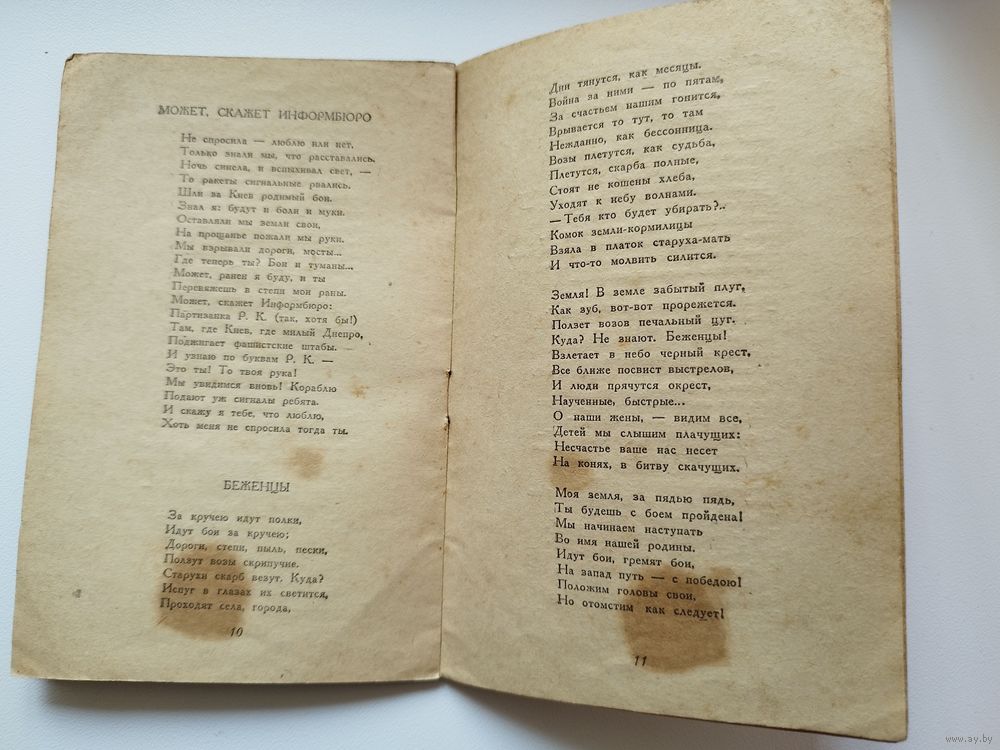 МОЖЕТ, СКАЖЕТ ИНФОРМБЮРО
Не спросила — люблю или нет.
Только знали мы, что расставались.
Ночь синела, и вспыхивал свет, —
То ракеты сигнальные рвались.
Шли за Киев родимый бои.
Знал я: будут и боли и муки.
Оставляли мы земли свои,
На прощанье пожали мы руки.
Мы взрывали дороги, мосты...
Где теперь ты? Бои и туманы...
Может, ранен я буду, и ты
Перевяжешь в степи мои раны.
Может, скажет Информбюро:
Партизанка Р. К. (так, хотя бы!)
Там, где Киев, где милый Днепро,
Поджигает фашистские штабы.
И узнаю по буквам Р. К. —
Это ты! То твоя рука!
Мы увидимся вновь! Кораблю
Подают уж сигналы ребята.
И скажу я тебе, что люблю,
Хоть меня не спросила тогда ты.
БЕЖЕНЦЫ
За кручею идут полки,
Идут бои за кручею;
Дороги, степи, пыль, пески,
Ползут возы скрипучие.
Старухи скарб везут. Куда?
Испуг в глазах их светится,
Проходят села, города,
10
Дни тянутся, как месяцы.
Война за ними — по пятам,
За счастьем нашим гонится,
Врывается то тут, то там
Нежданно, как бессонница.
Возы плетутся, как судьба,
Плетутся, скарба полные,
Стоят не кошены хлеба,
Уходят к небу волнами.
— Тебя кто будет убирать?..
Комок земли-кормилицы
Взяла в платок старуха-мать
И что-то молвить силится.
Земля! В земле забытый плуг,
Как зуб, вот-вот прорежется.
Ползет возов печальный цуг.
Куда? Не знают. Беженцы!
Взлетает в небо черный крест,
Все ближе посвист выстрелов,
И люди прячутся окрест,
Наученные, быстрые...
О наши жены, — видим все,
Детей мы слышим плачущих:
Несчастье ваше нас несет
На конях, в битву скачущих.
Моя земля, за пядью пядь,
Ты будешь с боем пройдена!
Мы начинаем наступать
Во имя нашей родины.
Идут бои, гремят бои,
На запад путь — с победою!
Положим головы свои,
Но отомстим как следует!
11
www.ay.by